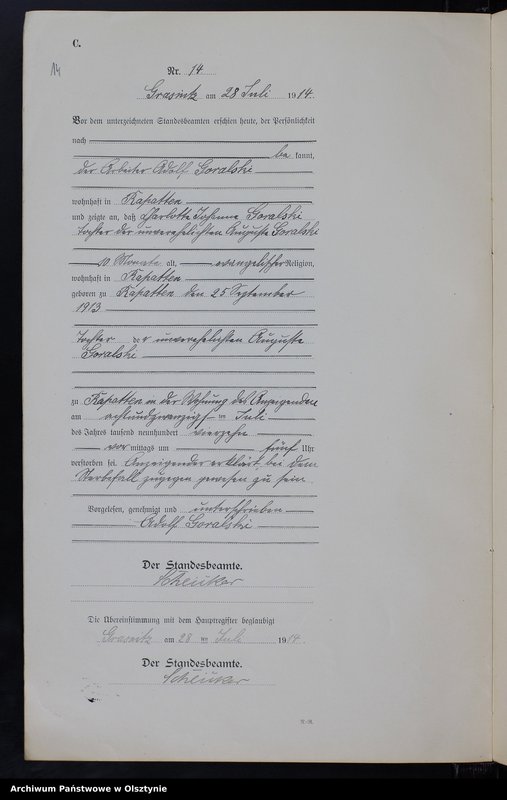 C.
14
Nr. 14
Grasnitz am 28 Juli 1914.
Vor dem unterzeichneten Standesbeamten erschien heute, der Persönlichkeit
nach
be kannt,
der Arbeiter Adolf Goralski
wohnhaft in Kapatten
und zeigte an, daß Charlotte Johanne Goralski
Tochter der unverehelichten Auguste Goralski
10 Monate alt, evangelischer Religion,
wohnhaft in Kapatten
geboren zu Kapatten den 25 September
1913
Tochter der unverehelichten Auguste
Goralski
zu Kapatten in der Wohnung des Anzeigenden
am achtundzwanzigsten Juli
des Jahres tausend neunhundert vierzehn
vor mittags um fünf Uhr
verstorben sei. Anzeigender erklärt, bei dem
Sterbefall zugegen gewesen zu sein
Vorgelesen, genehmigt und unterschrieben
Adolf Goralski
Der Standesbeamte.
Die Übereinstimmung mit dem Hauptregister beglaubigt
Grasnitz am 28 ten Juli 1914.
Der Standesbeamte.
Archiwum Państwowe w Olsztynie